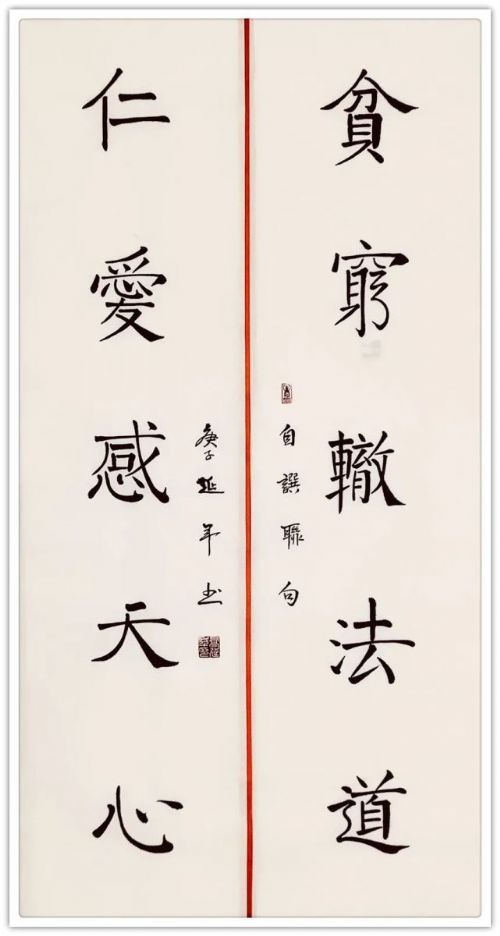 貧窮轍法道
自譔聯句
仁愛感天心
庚子延年书